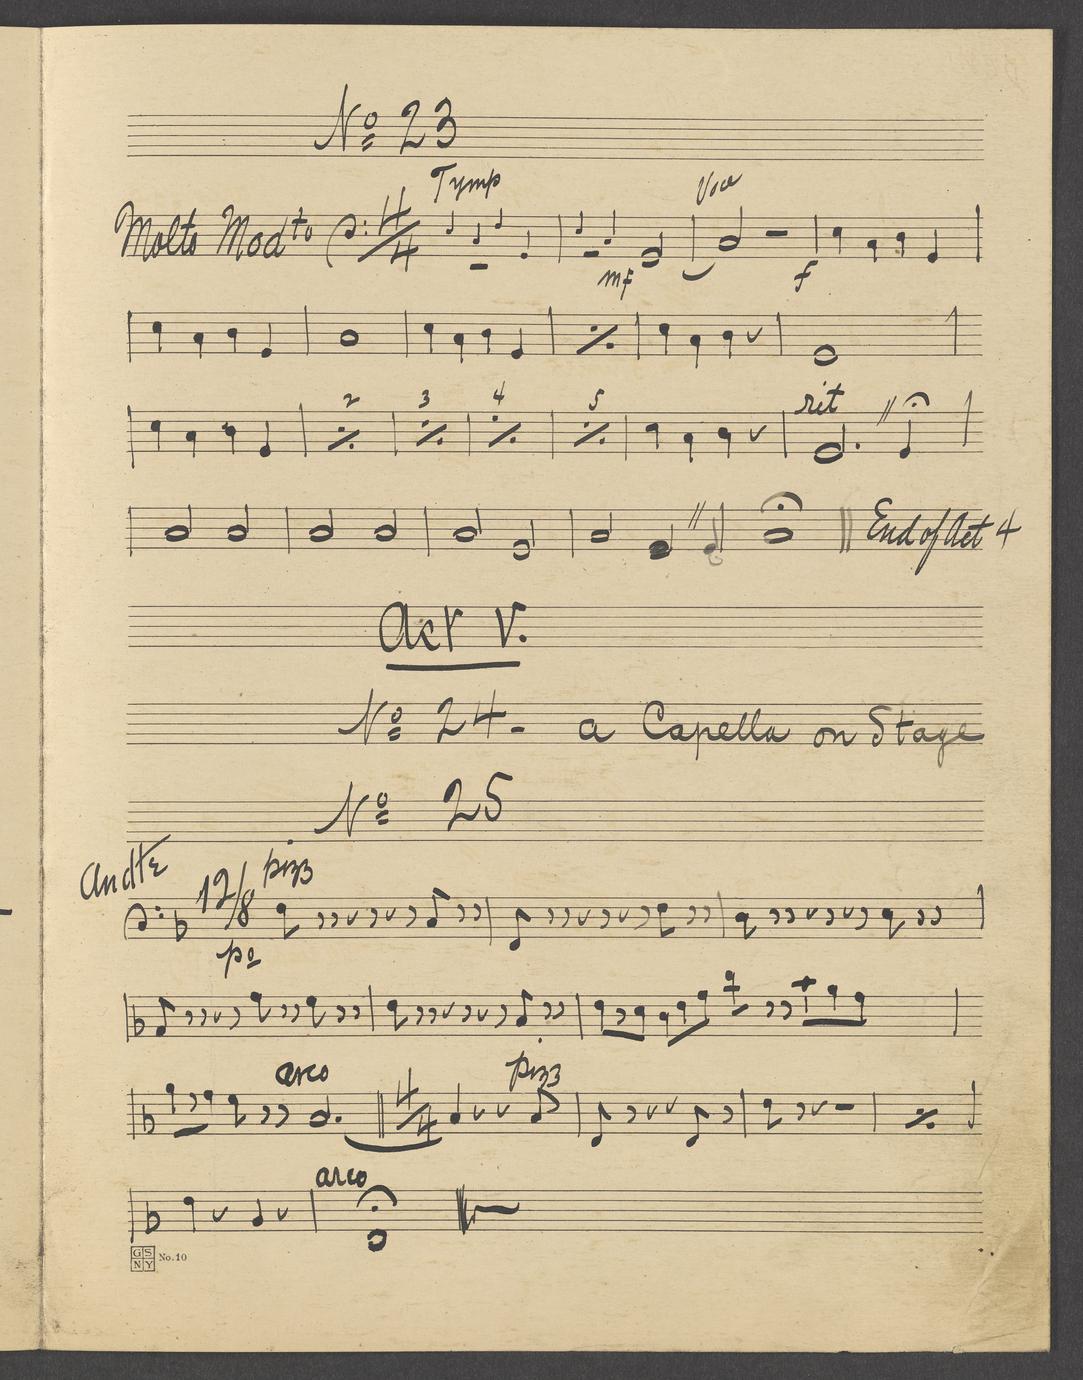 No 23
Tymp Voce
Molto Modto 4/4
mf f
2 3 4 5 rit
End of Act 4
Act V.
No 24 - a Capella on Stage
No 25
Andte 12/8 pizz
po
arco pizz
4/4
arco
GS NY No. 10